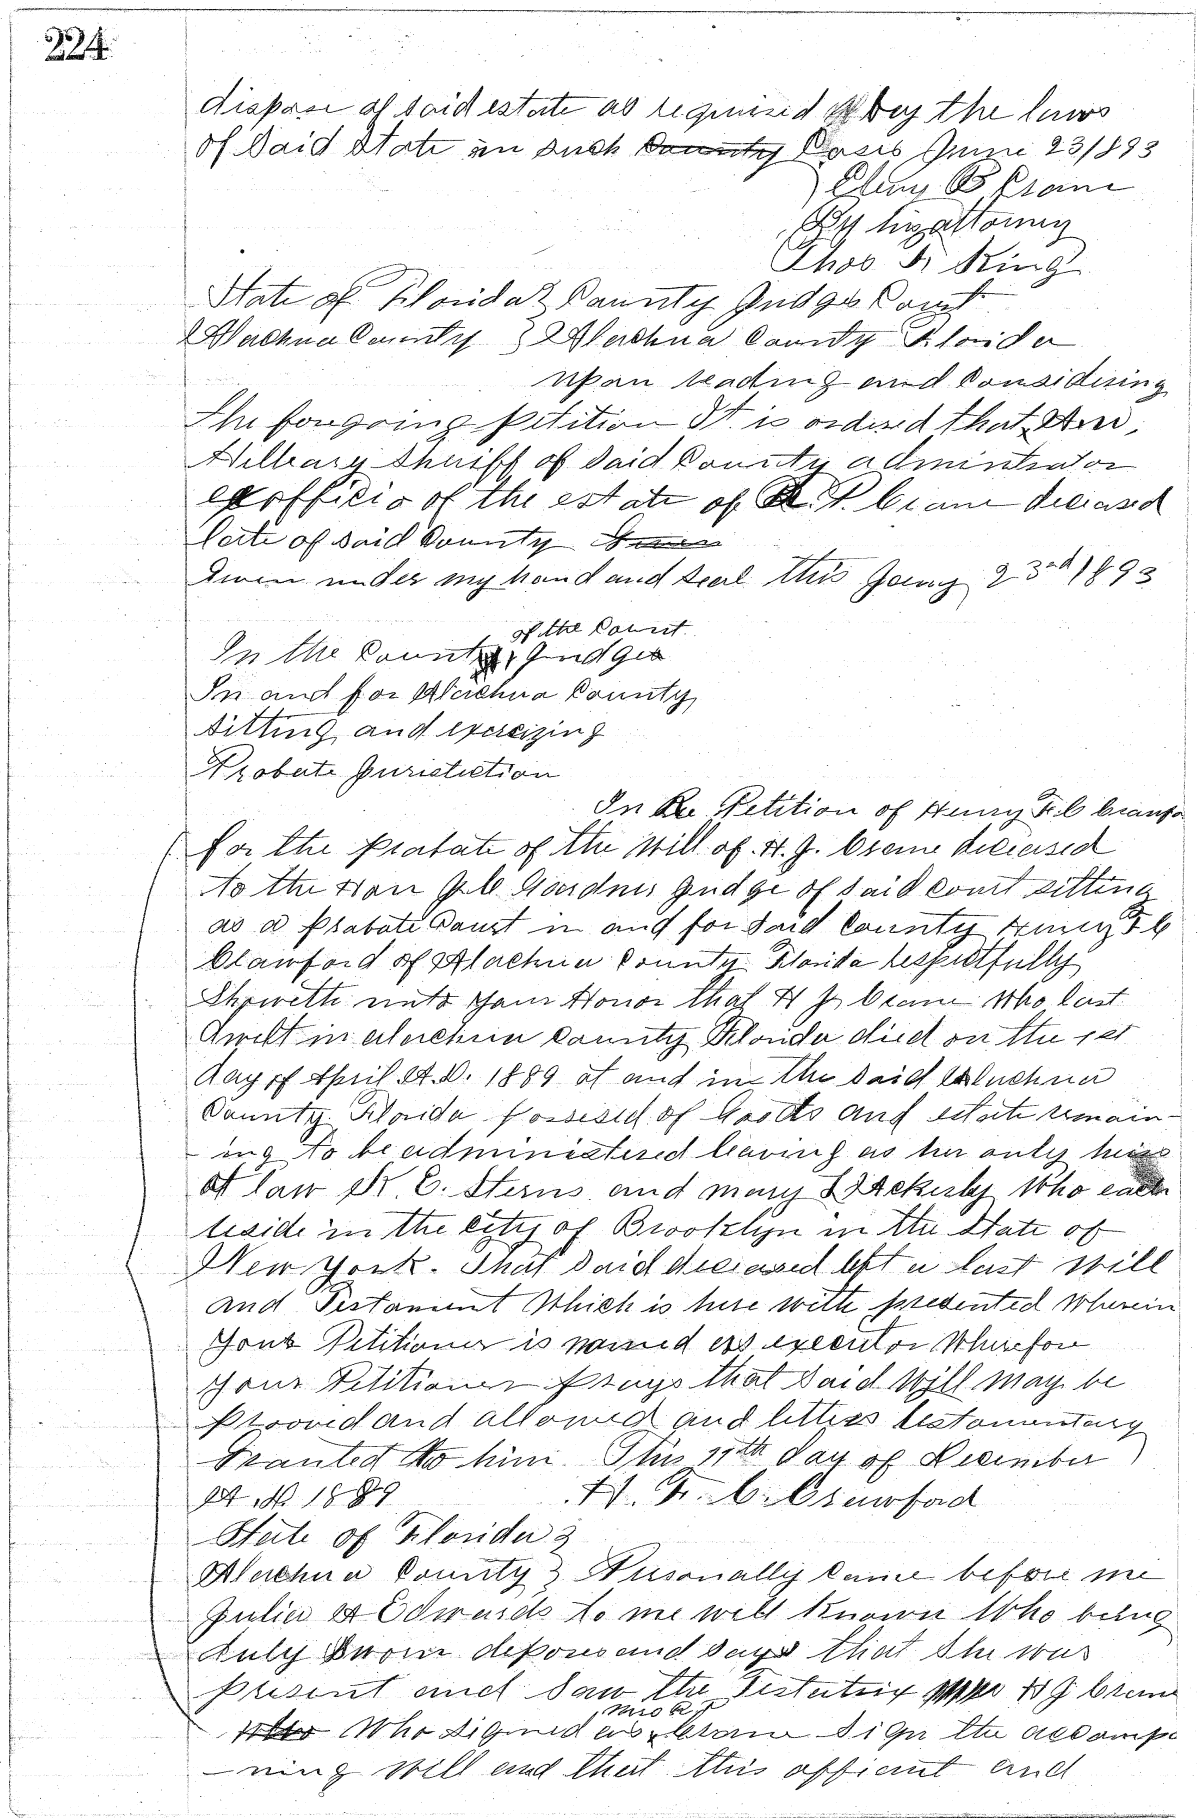 224
dispose of said estate as required by the laws
of said State in such County Cases June 23/893
B Crane
By his attorney
Thos F. King
State of Florida } County Judges Court
Alachua County } Alachua County Florida
upon reading and Considering
the forgoing petition It is ordered that
sheriff of said County administrator
exofficio of the estate of P. Crane deceased
late of said County Given
Given under my hand and seal this 23rd 1893
of the Court
In the County Judges
In and for Alachua County
sitting and exercizing
Probate Juristiction
In Re Petition of Henry F. C
for the probate of the will of H. J. Crane deceased
to the Hon J. C. Gardner Judge of said court sitting
as a probate Court in and for said County Henry F C
Crawford of Alachua County Florida respectfully
Showeth unto your Honor that H J Crane who last
dwelt in alachua County Florida died on the 1st
day of April A.D. 1889 at and in the said Alachua
County Florida possessed of Goods and estate remain-
-ing to be administered leaving as her only heirs
at law K. E. Sterns and mary Who each
reside in the city of Brooklyn in the State of
New York. That said deceased left a last will
and Testament Which is here with presented Wherein
your Petitioner is named as executor Wherefore
your Petitioner prays that said Will may be
prooved and allowed and letters testamentary
Granted to him This 11th day of December
A. D. 1889 H. F. C. Crawford
State of Florida }
Alachua County } Personally Came before me
Julia A Edwards to me well known Who being
duly sworn deposes and says that she was
present and saw the Testatrix H J Crane
Miss R J
Who Who signed as Crane sign the accompa
-ning will and that this affiant and